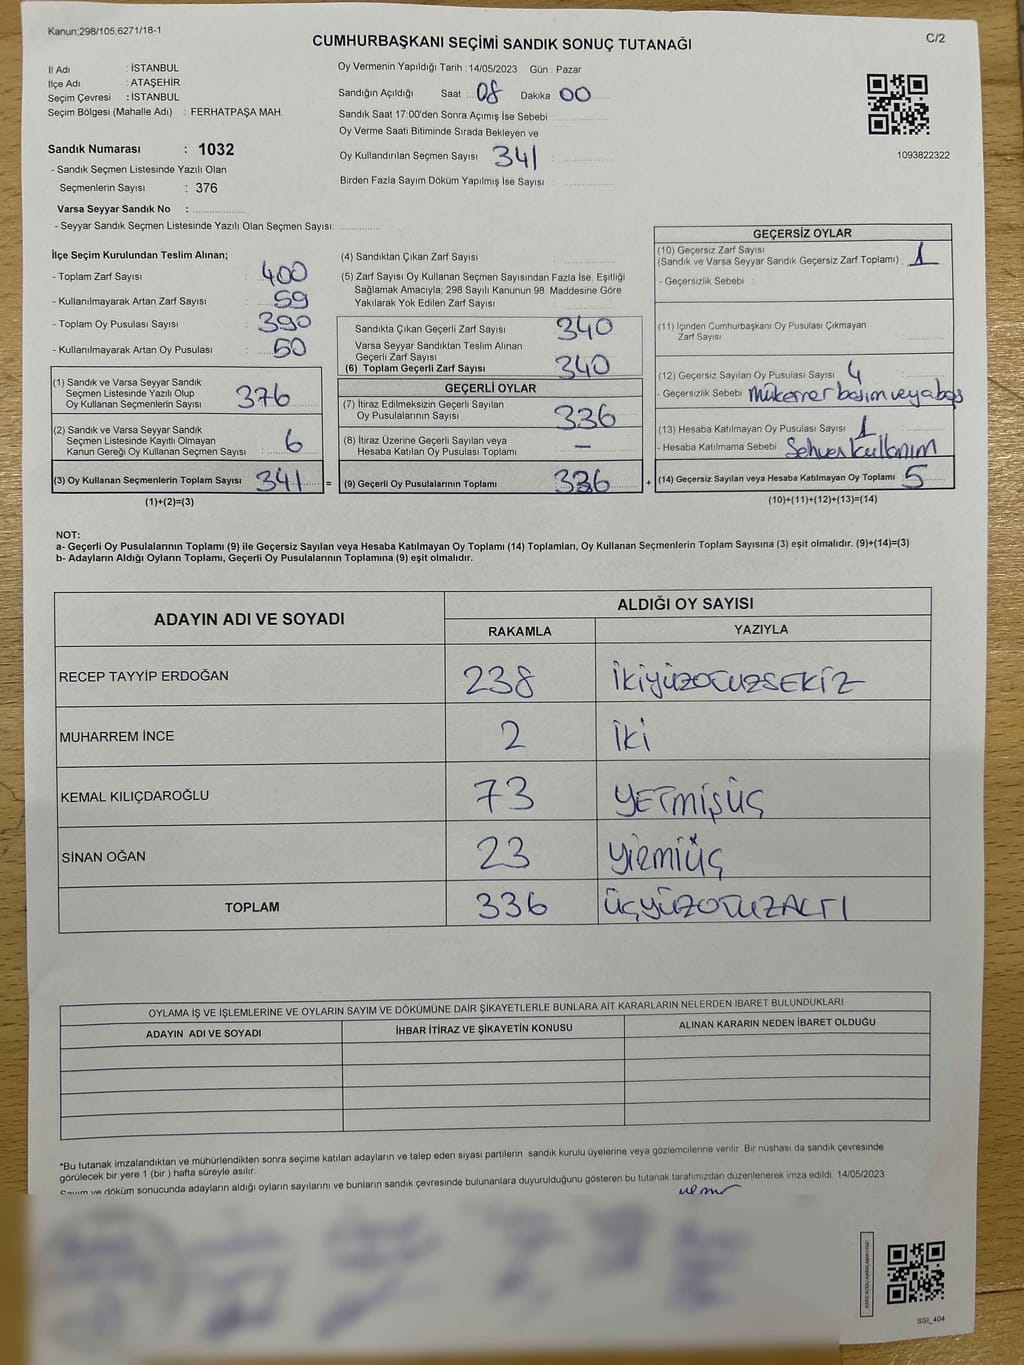 Kanun;298/105,6271/18-1
C/2
CUMHURBAŞKANI SEÇİMİ SANDIK SONUÇ TUTANAĞI
İl Adı : İSTANBUL
İlçe Adı : ATAŞEHİR
Seçim Çevresi : İSTANBUL
Seçim Bölgesi (Mahalle Adı) : FERHATPAŞA MAH.
Sandık Numarası : 1032
- Sandık Seçmen Listesinde Yazılı Olan
Seçmenlerin Sayısı : 376
Varsa Seyyar Sandık No :
- Seyyar Sandık Seçmen Listesinde Yazılı Olan Seçmen Sayısı:
Oy Vermenin Yapıldığı Tarih : 14/05/2023 Gün : Pazar
Sandığın Açıldığı Saat : 08 Dakika : 00
Sandık Saat 17:00'den Sonra Açımış İse Sebebi
Oy Verme Saati Bitiminde Sırada Bekleyen ve
Oy Kullandırılan Seçmen Sayısı 341
Birden Fazla Sayım Döküm Yapılmış İse Sayısı :
1093822322
İlçe Seçim Kurulundan Teslim Alınan;
- Toplam Zarf Sayısı : 400
- Kullanılmayarak Artan Zarf Sayısı : 59
- Toplam Oy Pusulası Sayısı : 390
- Kullanılmayarak Artan Oy Pusulası : 50
(1) Sandık ve Varsa Seyyar Sandık
Seçmen Listesinde Yazılı Olup
Oy Kullanan Seçmenlerin Sayısı 376
(2) Sandık ve Varsa Seyyar Sandık
Seçmen Listesinde Kayıtlı Olmayan
Kanun Gereği Oy Kullanan Seçmen Sayısı 6
(3) Oy Kullanan Seçmenlerin Toplam Sayısı 341 =
(1)+(2)=(3)
(4) Sandıktan Çıkan Zarf Sayısı
(5) Zarf Sayısı Oy Kullanan Seçmen Sayısından Fazla İse, Eşitliği
Sağlamak Amacıyla; 298 Sayılı Kanunun 98. Maddesine Göre
Yakılarak Yok Edilen Zarf Sayısı
Sandıkta Çıkan Geçerli Zarf Sayısı 340
Varsa Seyyar Sandıktan Teslim Alınan
Geçerli Zarf Sayısı
(6) Toplam Geçerli Zarf Sayısı 340
GEÇERLİ OYLAR
(7) İtiraz Edilmeksizin Geçerli Sayılan
Oy Pusulalarının Sayısı 336
(8) İtiraz Üzerine Geçerli Sayılan veya
Hesaba Katılan Oy Pusulası Toplamı –
(9) Geçerli Oy Pusulalarının Toplamı 336 +
GEÇERSİZ OYLAR
(10) Geçersiz Zarf Sayısı
(Sandık ve Varsa Seyyar Sandık Geçersiz Zarf Toplamı) : 1
- Geçersizlik Sebebi :
(11) İçinden Cumhurbaşkanı Oy Pusulası Çıkmayan
Zarf Sayısı
(12) Geçersiz Sayılan Oy Pusulası Sayısı : 4
- Geçersizlik Sebebi Mükerrer basım veya boş
(13) Hesaba Katılmayan Oy Pusulası Sayısı : 1
- Hesaba Katılmama Sebebi : Sehven kullanım
(14) Geçersiz Sayılan veya Hesaba Katılmayan Oy Toplamı 5
(10)+(11)+(12)+(13)=(14)
NOT:
a- Geçerli Oy Pusulalarının Toplamı (9) ile Geçersiz Sayılan veya Hesaba Katılmayan Oy Toplamı (14) Toplamları, Oy Kullanan Seçmenlerin Toplam Sayısına (3) eşit olmalıdır. (9)+(14)=(3)
b- Adayların Aldığı Oyların Toplamı, Geçerli Oy Pusulalarının Toplamına (9) eşit olmalıdır.
ADAYIN ADI VE SOYADI ALDIĞI OY SAYISI
RAKAMLA YAZIYLA
RECEP TAYYİP ERDOĞAN 238 İKİYÜZOTUZSEKİZ
MUHARREM İNCE 2 İKİ
KEMAL KILIÇDAROĞLU 73 YETMİŞÜÇ
SİNAN OĞAN 23 YİRMİÜÇ
TOPLAM 336 ÜÇYÜZOTUZALTI
OYLAMA İŞ VE İŞLEMLERİNE VE OYLARIN SAYIM VE DÖKÜMÜNE DAİR ŞİKAYETLERLE BUNLARA AİT KARARLARIN NELERDEN İBARET BULUNDUKLARI
ADAYIN ADI VE SOYADI İHBAR İTİRAZ VE ŞİKAYETİN KONUSU ALINAN KARARIN NEDEN İBARET OLDUĞU
*Bu tutanak imzalandıktan ve mühürlendikten sonra seçime katılan adayların ve talep eden siyasi partilerin sandık kurulu üyelerine veya gözlemcilerine verilir. Bir nüshası da sandık çevresinde
görülecek bir yere 1 (bir ) hafta süreyle asılır.
Sayım ve döküm sonucunda adayların aldığı oyların sayılarını ve bunların sandık çevresinde bulunanlara duyurulduğunu gösteren bu tutanak tarafımızdan düzenlenerek imza edildi. 14/05/2023
KARE KODU KARALAMAYINIZ!
SSI_404